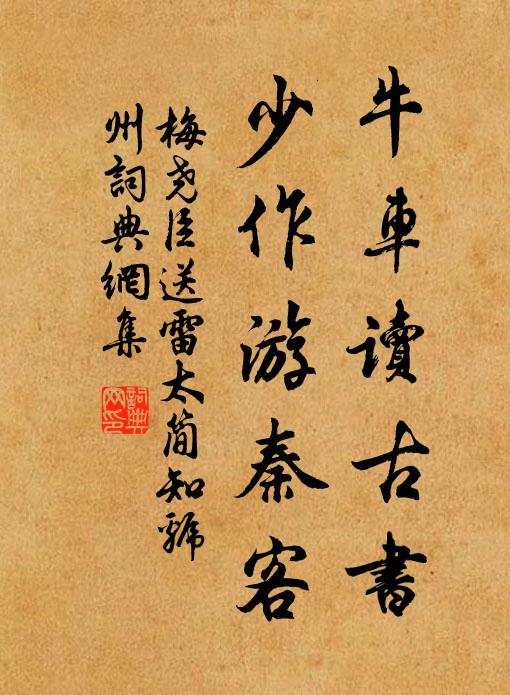 牛車讀古書
少作游秦客
梅堯臣送雷太簡知虢
州詞典網集
詞典網印